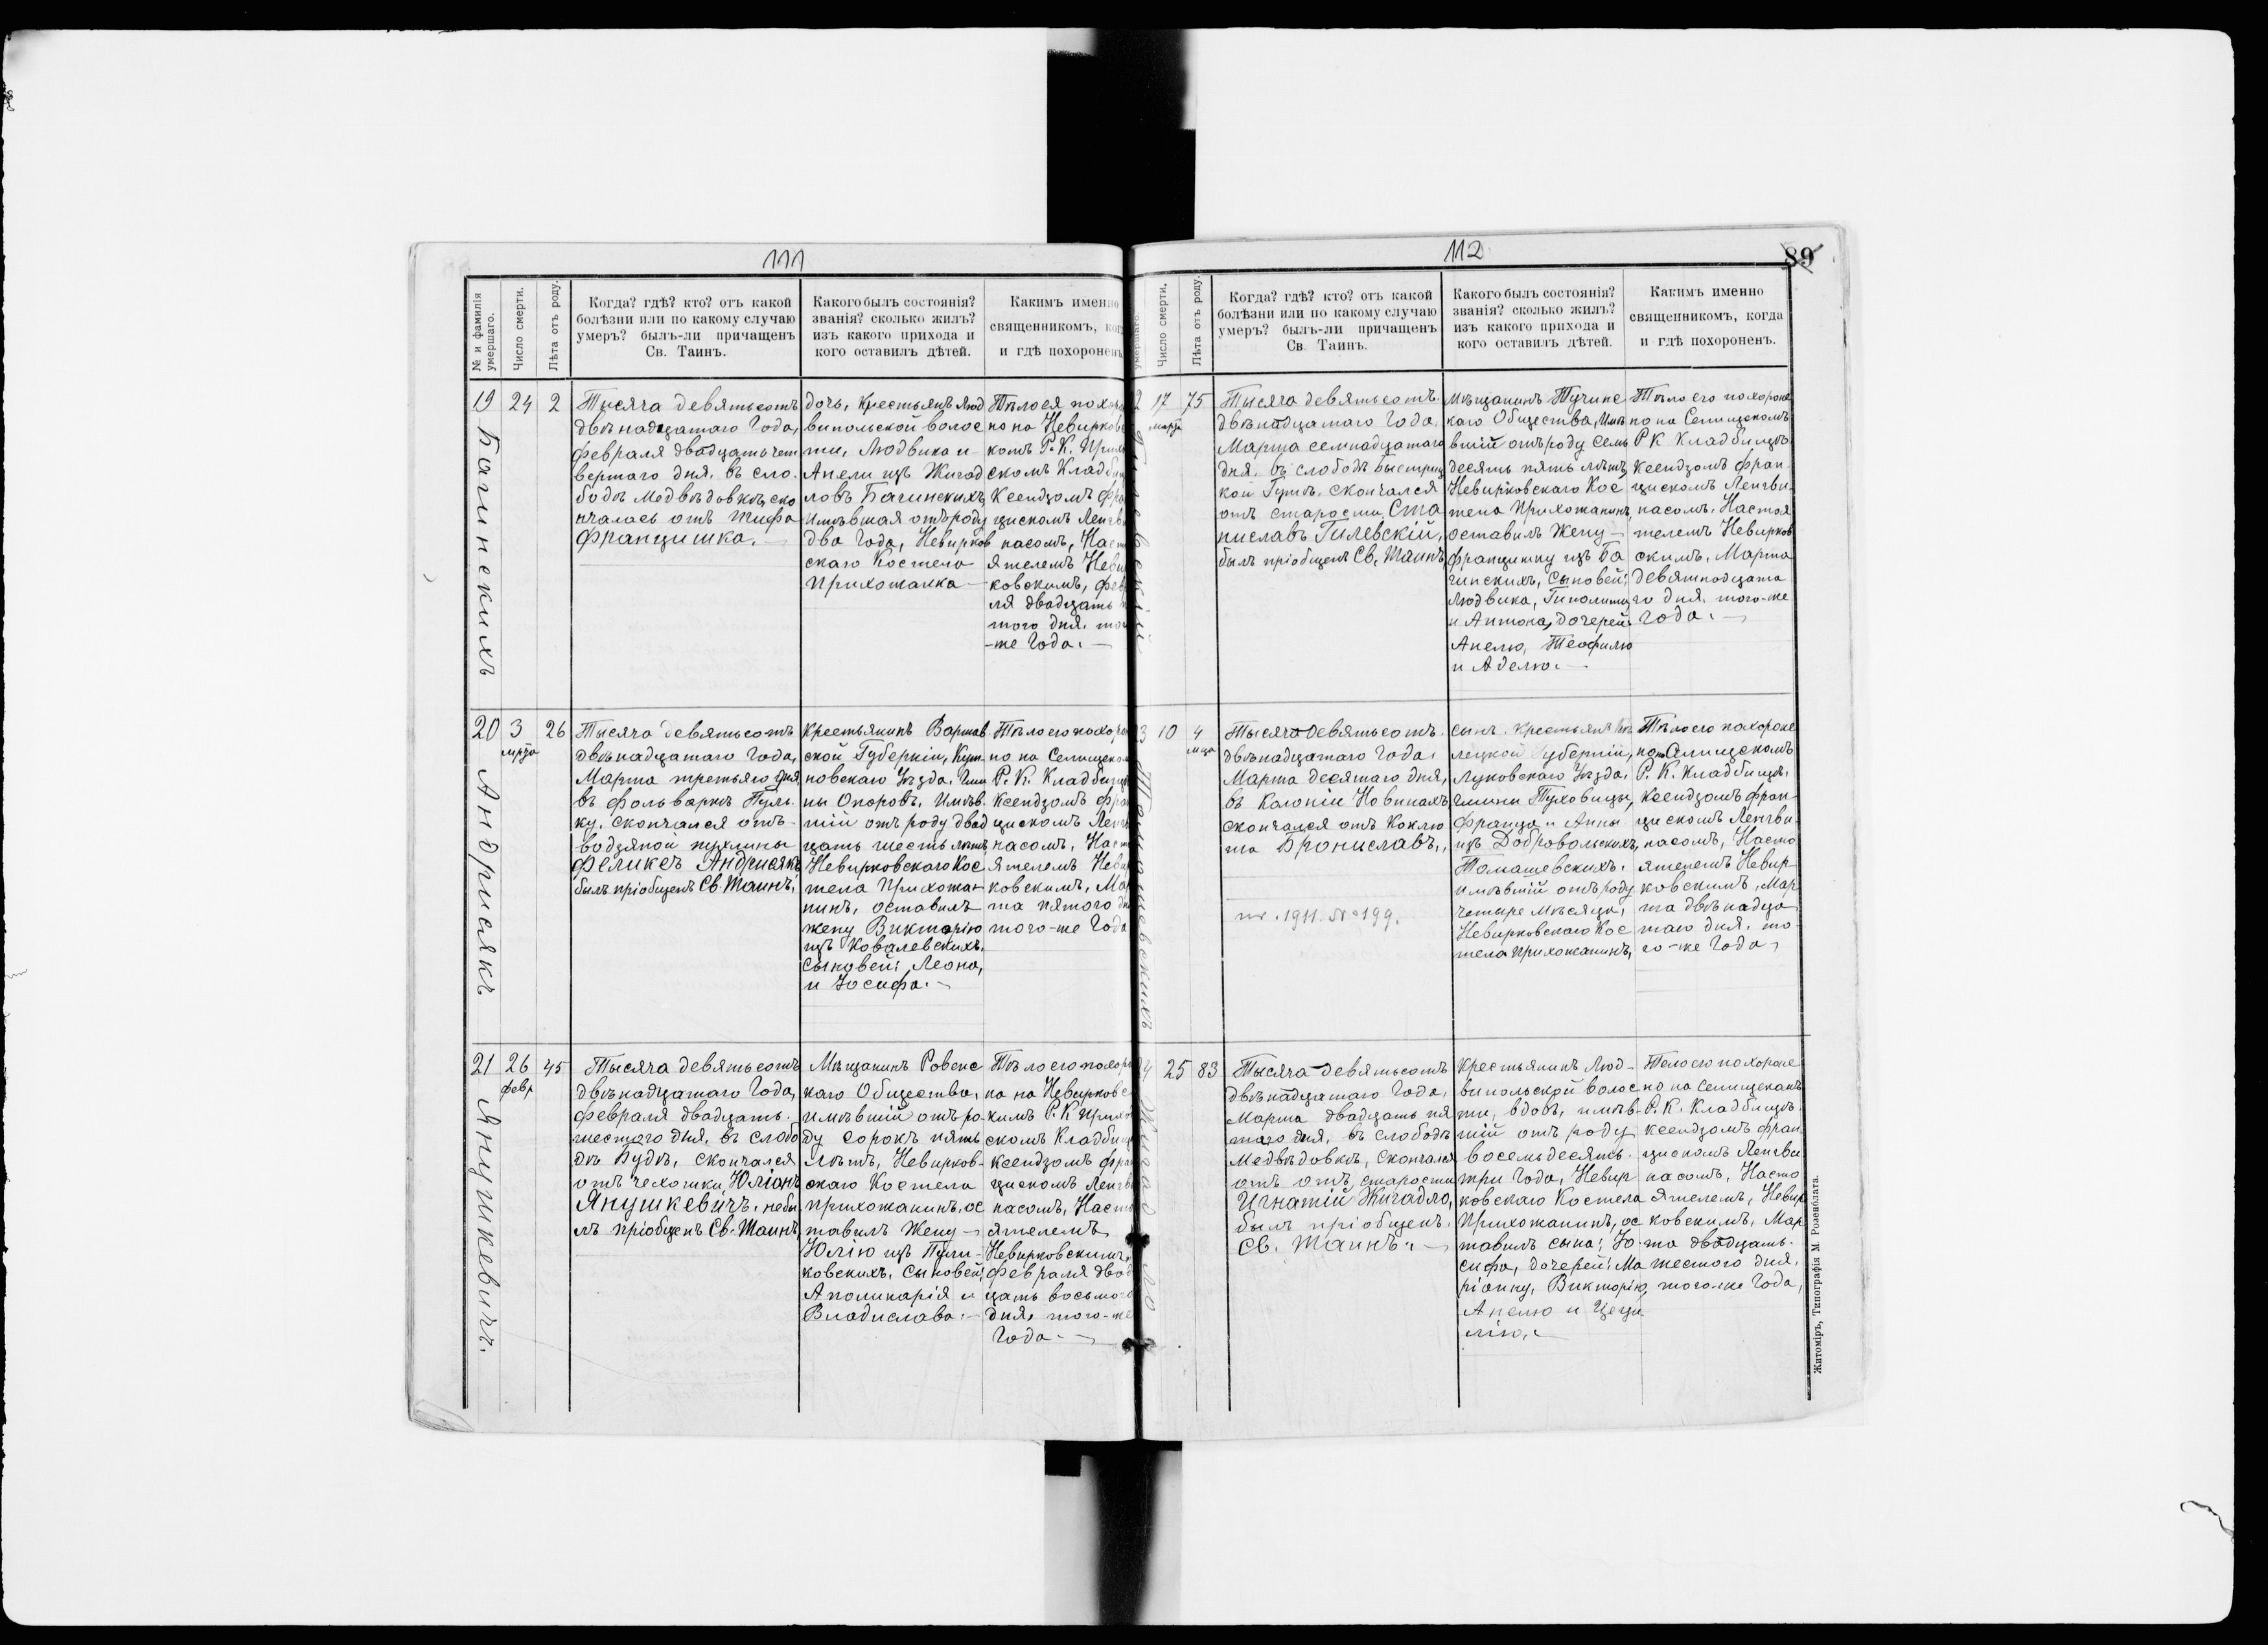 111
№ и фамилія умершаго.
Число смерти.
Лѣта отъ роду.
Когда? гдѣ? кто? отъ какой
болѣзни или по какому случаю
умеръ? былъ-ли причащенъ
Св. Таинъ.
Какого былъ состоянія?
званія? сколько жилъ?
изъ какого прихода и
кого оставилъ дѣтей.
Какимъ именно
священникомъ, ког
и гдѣ похороненъ
19
Багинскихъ
24
2
Тысяча девятьсотъ
двѣнадцатаго Года,
февраля двадцать чет
вертаго дня, въ сло-
бодѣ Медвѣдовкѣ, ско
нчалась отъ тифа
Францишка. —
дочь, Крестьянъ Люд
випольской волос
ти, Людвика и
Анели изъ Жигад
ловъ Багинскихъ,
имѣвшая отъ роду
два Года, Невирков
скаго Костела
Прихожанка —
Тѣло ея похоро
но на Невирковс
комъ Р. К. Прихо
скомъ Кладби
Ксендзомъ Фра
цискомъ Ленгви
насомъ, Наст
ятелемъ Неви
ковскимъ, фев
ля двадцать
того дня, то
-же Года. —
20
Андрисякъ
3
мрта
26
Тысяча девятьсотъ
двѣнадцатаго Года,
Марта третьяго дня,
въ фольваркѣ Гуль-
ку, скончался отъ
водяной пухлины
Феликсъ Андрисякъ
былъ пріобщенъ Св. Таинъ,
Крестьянинъ Варшав
ской Губерніи, Кут-
новскаго Уѣзда, Гми
ны Опоровъ, имѣв-
шій отъ роду двад
цать шесть лѣтъ,
Невирковскаго Кос
тела Прихожан
нинъ, оставилъ
жену Викторію
изъ Ковалевскихъ,
Сыновей: Леона,
и Іосифа. —
Тѣло его похоро
но на Селищско
Р. К. Кладбищ
Ксендзомъ Фра
цискомъ Ленг
насомъ, Наст
ятелемъ Неви
ковскимъ, Ма
та пятого д
того-же Года
21
Янушкевичъ.
26
февр
45
Тысяча девятьсотъ
двѣнадцатаго Года,
февраля двадцать-
шестого дня, въ слобо
дѣ Будкѣ, скончался
отъ чехотки Юліанъ
Янушкевичъ, небы
лъ пріобщенъ Св. Таинъ,
Мѣщанинъ Ровенс
каго Общества,
имѣвшій отъ ро-
ду сорокъ пять
лѣтъ, Невирков-
скаго Костела
прихожанинъ, ос
тавилъ Жену —
Юлію изъ Гули-
ковскихъ, Сыновей:
Аполинарія и
Владислава. —
Тѣло его похоро
на на Невирковс
кимъ Р. К. прихо
скомъ Кладбищ
Ксендзомъ Фра
цискомъ Ленгв
насомъ, Наст
ятелемъ
Невирковскимъ,
февраля двад
цать восьмого
дня, того-же
Года. —
112
89
умершаго.
Число смерти.
Лѣта отъ роду.
Когда? гдѣ? кто? отъ какой
болѣзни или по какому случаю
умеръ? былъ-ли причащенъ
Св. Таинъ.
Какого былъ состоянія?
званія? сколько жилъ?
изъ какого прихода и
кого оставилъ дѣтей.
Какимъ именно
священникомъ, когда
и гдѣ похороненъ.
2
17
марта
75
Тысяча девятьсотъ
двѣнадцатаго Года,
Марта семнадцатаго
дня, въ слободѣ Быстриц
кой Гутѣ, скончался
отъ старости Ста
ниславъ Гилевскій,
былъ пріобщенъ Св. Таинъ,
Мѣщанинъ Тучинс
каго Общества, имѣ
вшій отъ роду семь
десять пять лѣтъ,
Невирковскаго Кос
тела Прихожанинъ,
оставилъ Жену —
Францишку изъ Ба
гинскихъ, Сыновей:
Людвика, Гиполита
и Антона, дочерей
Анелю, Теофилю
и Аделю. —
Тѣло его похороне
но на Селищскомъ
Р К Кладбищѣ
Ксендзомъ Фран-
цискомъ Ленгви-
насомъ, Настоя
телемъ Невирков
скимъ, Марта
девятнадцата
го дня, того-же
Года. —
3
Томашевскихъ
10
4
мца
Тысяча девятьсотъ
двѣнадцатаго Года,
Марта десятаго дня,
въ Колоніи Новинахъ
скончался отъ Коклю
ша Брониславъ,
nr. 1911. № 199.
сынъ Крестьянъ Сѣд
лецкой Губерніи,
Луковскаго Уѣзда,
Гмины Туховицы,
Франца и Анны
изъ Добровольскихъ
Томашевскихъ,
имѣвшій отъ роду
четыре Мѣсяца,
Невирковскаго Кос
тела Прихожанинъ,
Тѣло его похороне
но на Селищскомъ
Р. К. Кладбищѣ,
Ксендзомъ Фран-
цискомъ Ленгви
насомъ, Насто
ятелемъ Невир
ковскимъ, Мар
та двѣнадца
таго дня, то
го-же Года,
4
Жигадло
25
83
Тысяча девятьсотъ
двѣнадцатаго Года,
Марта двадцать пя
таго дня, въ слободѣ
Медвѣдовкѣ, скончался
отъ отъ старости
Игнатій Жигадло,
былъ пріобщенъ
Св. Таинъ. —
Крестьянинъ Люд-
випольской волос
ти, вдовъ, имѣв-
шій отъ роду
восемьдесять
три Года, Невир
ковскаго Костела
Прихожанинъ, ос
тавилъ сына: Іо-
сифа, дочерей: Ма
ріанну, Викторію,
Анелю и Цеци
лію. —
Тело его похороне
но на Селищскамъ
Р. К. Кладбищѣ
Ксендзомъ Фран
цискомъ Ленгви
насомъ, Насто
ятелемъ, Невир
ковскимъ, Мар
та двадцать-
шестого дня,
того-же Года,
Житоміръ, Типографія М. Розенблата.